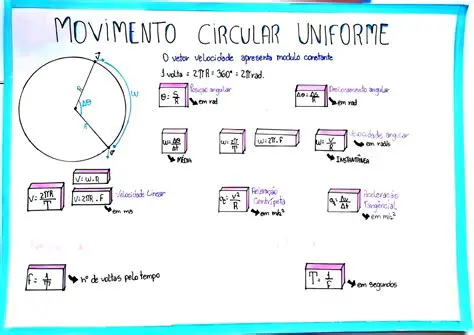 MOVIMENTO CIRCULAR UNIFORME
O vetor velocidade apresenta modulo constante
1 volta = 2πR = 360° = 2π rad.
Posição angular
θ = S/R
em rad
Deslocamento angular
Δθ = Δs/R
em rad
R
Δθ
R
W
W = Δθ/Δt
MÉDIA
W = 2π/T
W = 2π . F
W = V/R
INSTANTÂNEA
Velocidades angular
em rad/s
V = W . R
V = 2πR/T
V = 2πR . F
Velocidade Linear
em m/s
= V²/R
Aceleração
Centrípeta
em m/s²
= Δv/Δt
Aceleração
Tangencial
em m/s²
f = 1/T
n° de voltas pelo tempo
T = 1/f
em segundos